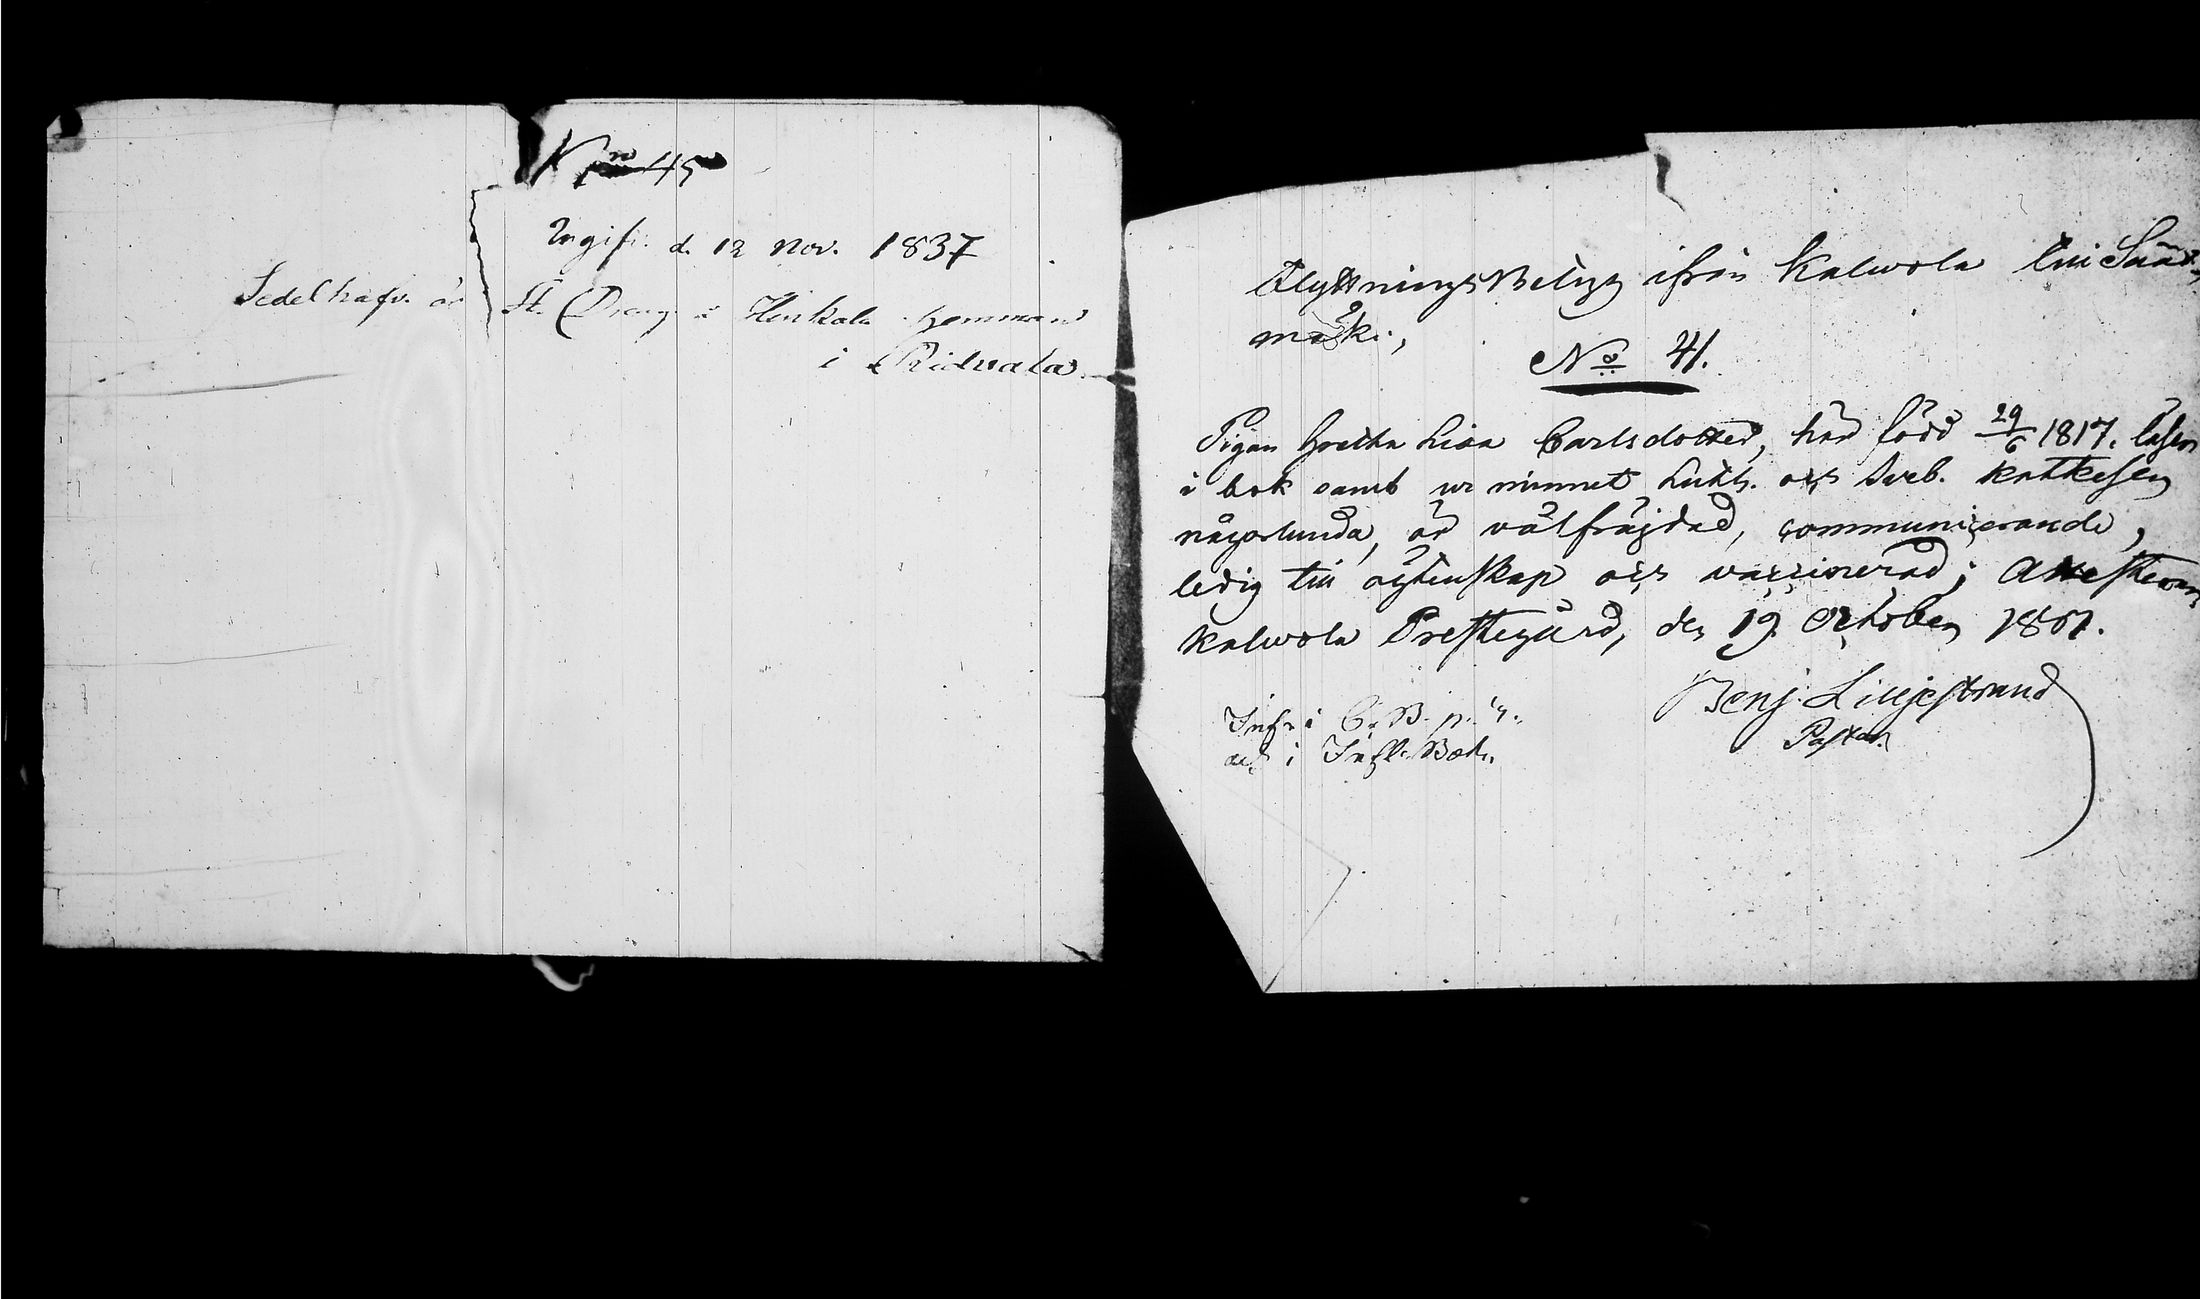 No 45
Ingif. d. 12 Nov. 1837
Sedelhafv. är St. Dräng i Heikkala hemman
i Ridvala
Flyttnings Betyg ifrån Kalwola till Sääx-
mäki,
No 41.
Pigan Gretha Lisa Carlsdotter, här född 29/6 1817. läser
i bok samt ur minnet Luth. och Sveb. Katkesen
någorlunda, är välfräjdad, communicerande,
ledig till ägtenskap och vaccinerad; Attesterar
Kalwola Prestegård, den 19 October 1837.
Benj. Liljestrand
Pastor.
Infr. i C. B. p.
och i Infl. Bok.